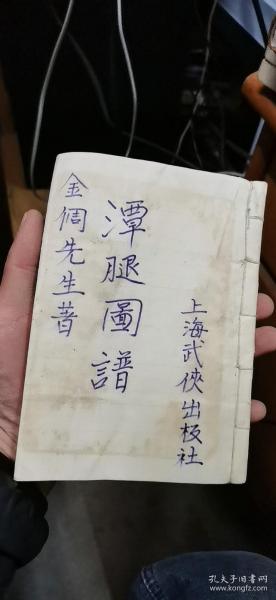 上海武俠出板社
潭腿圖譜
金倜先生著
孔夫子旧书网
www.kongfz.com